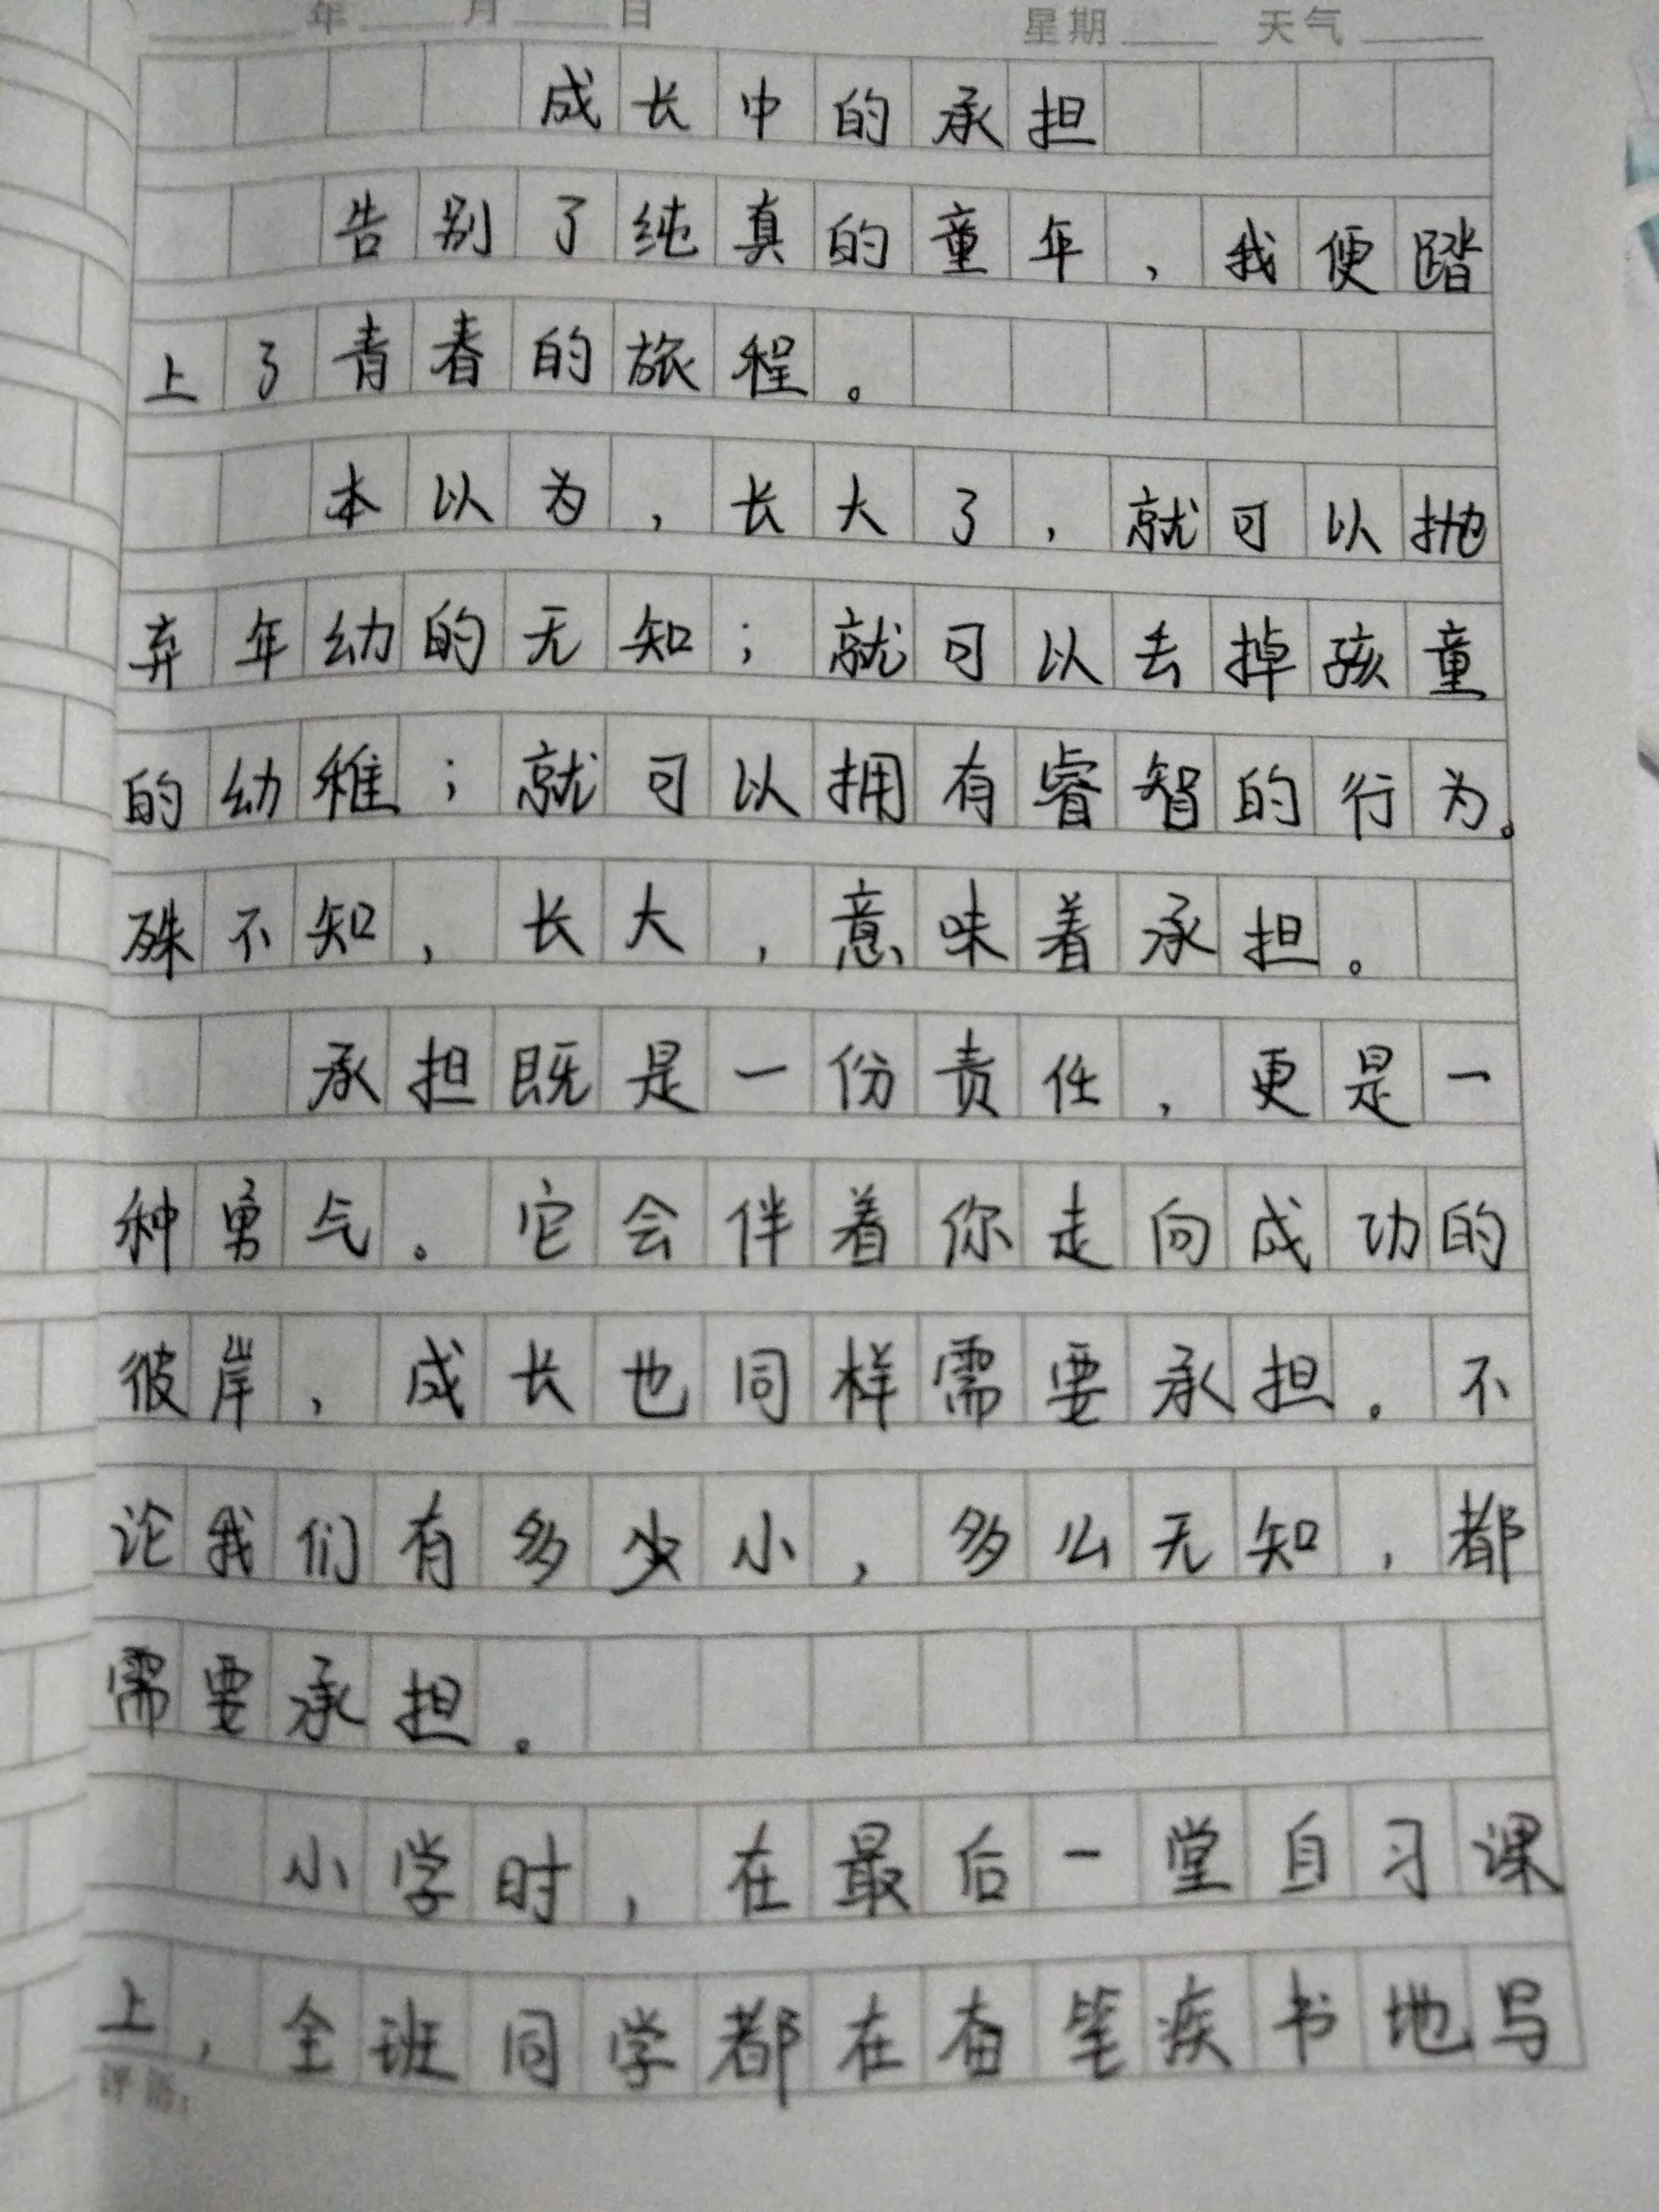 年 月 日 星期 天气
成长中的承担
告别了纯真的童年，我便踏
上了青春的旅程。
本以为，长大了，就可以抛
弃年幼的无知；就可以去掉孩童
的幼稚；就可以拥有睿智的行为。
殊不知，长大，意味着承担。
承担既是一份责任，更是一
种勇气。它会伴着你走向成功的
彼岸，成长也同样需要承担。不
论我们有多少小，多么无知，都
需要承担。
小学时，在最后一堂自习课
上，全班同学都在奋笔疾书地写